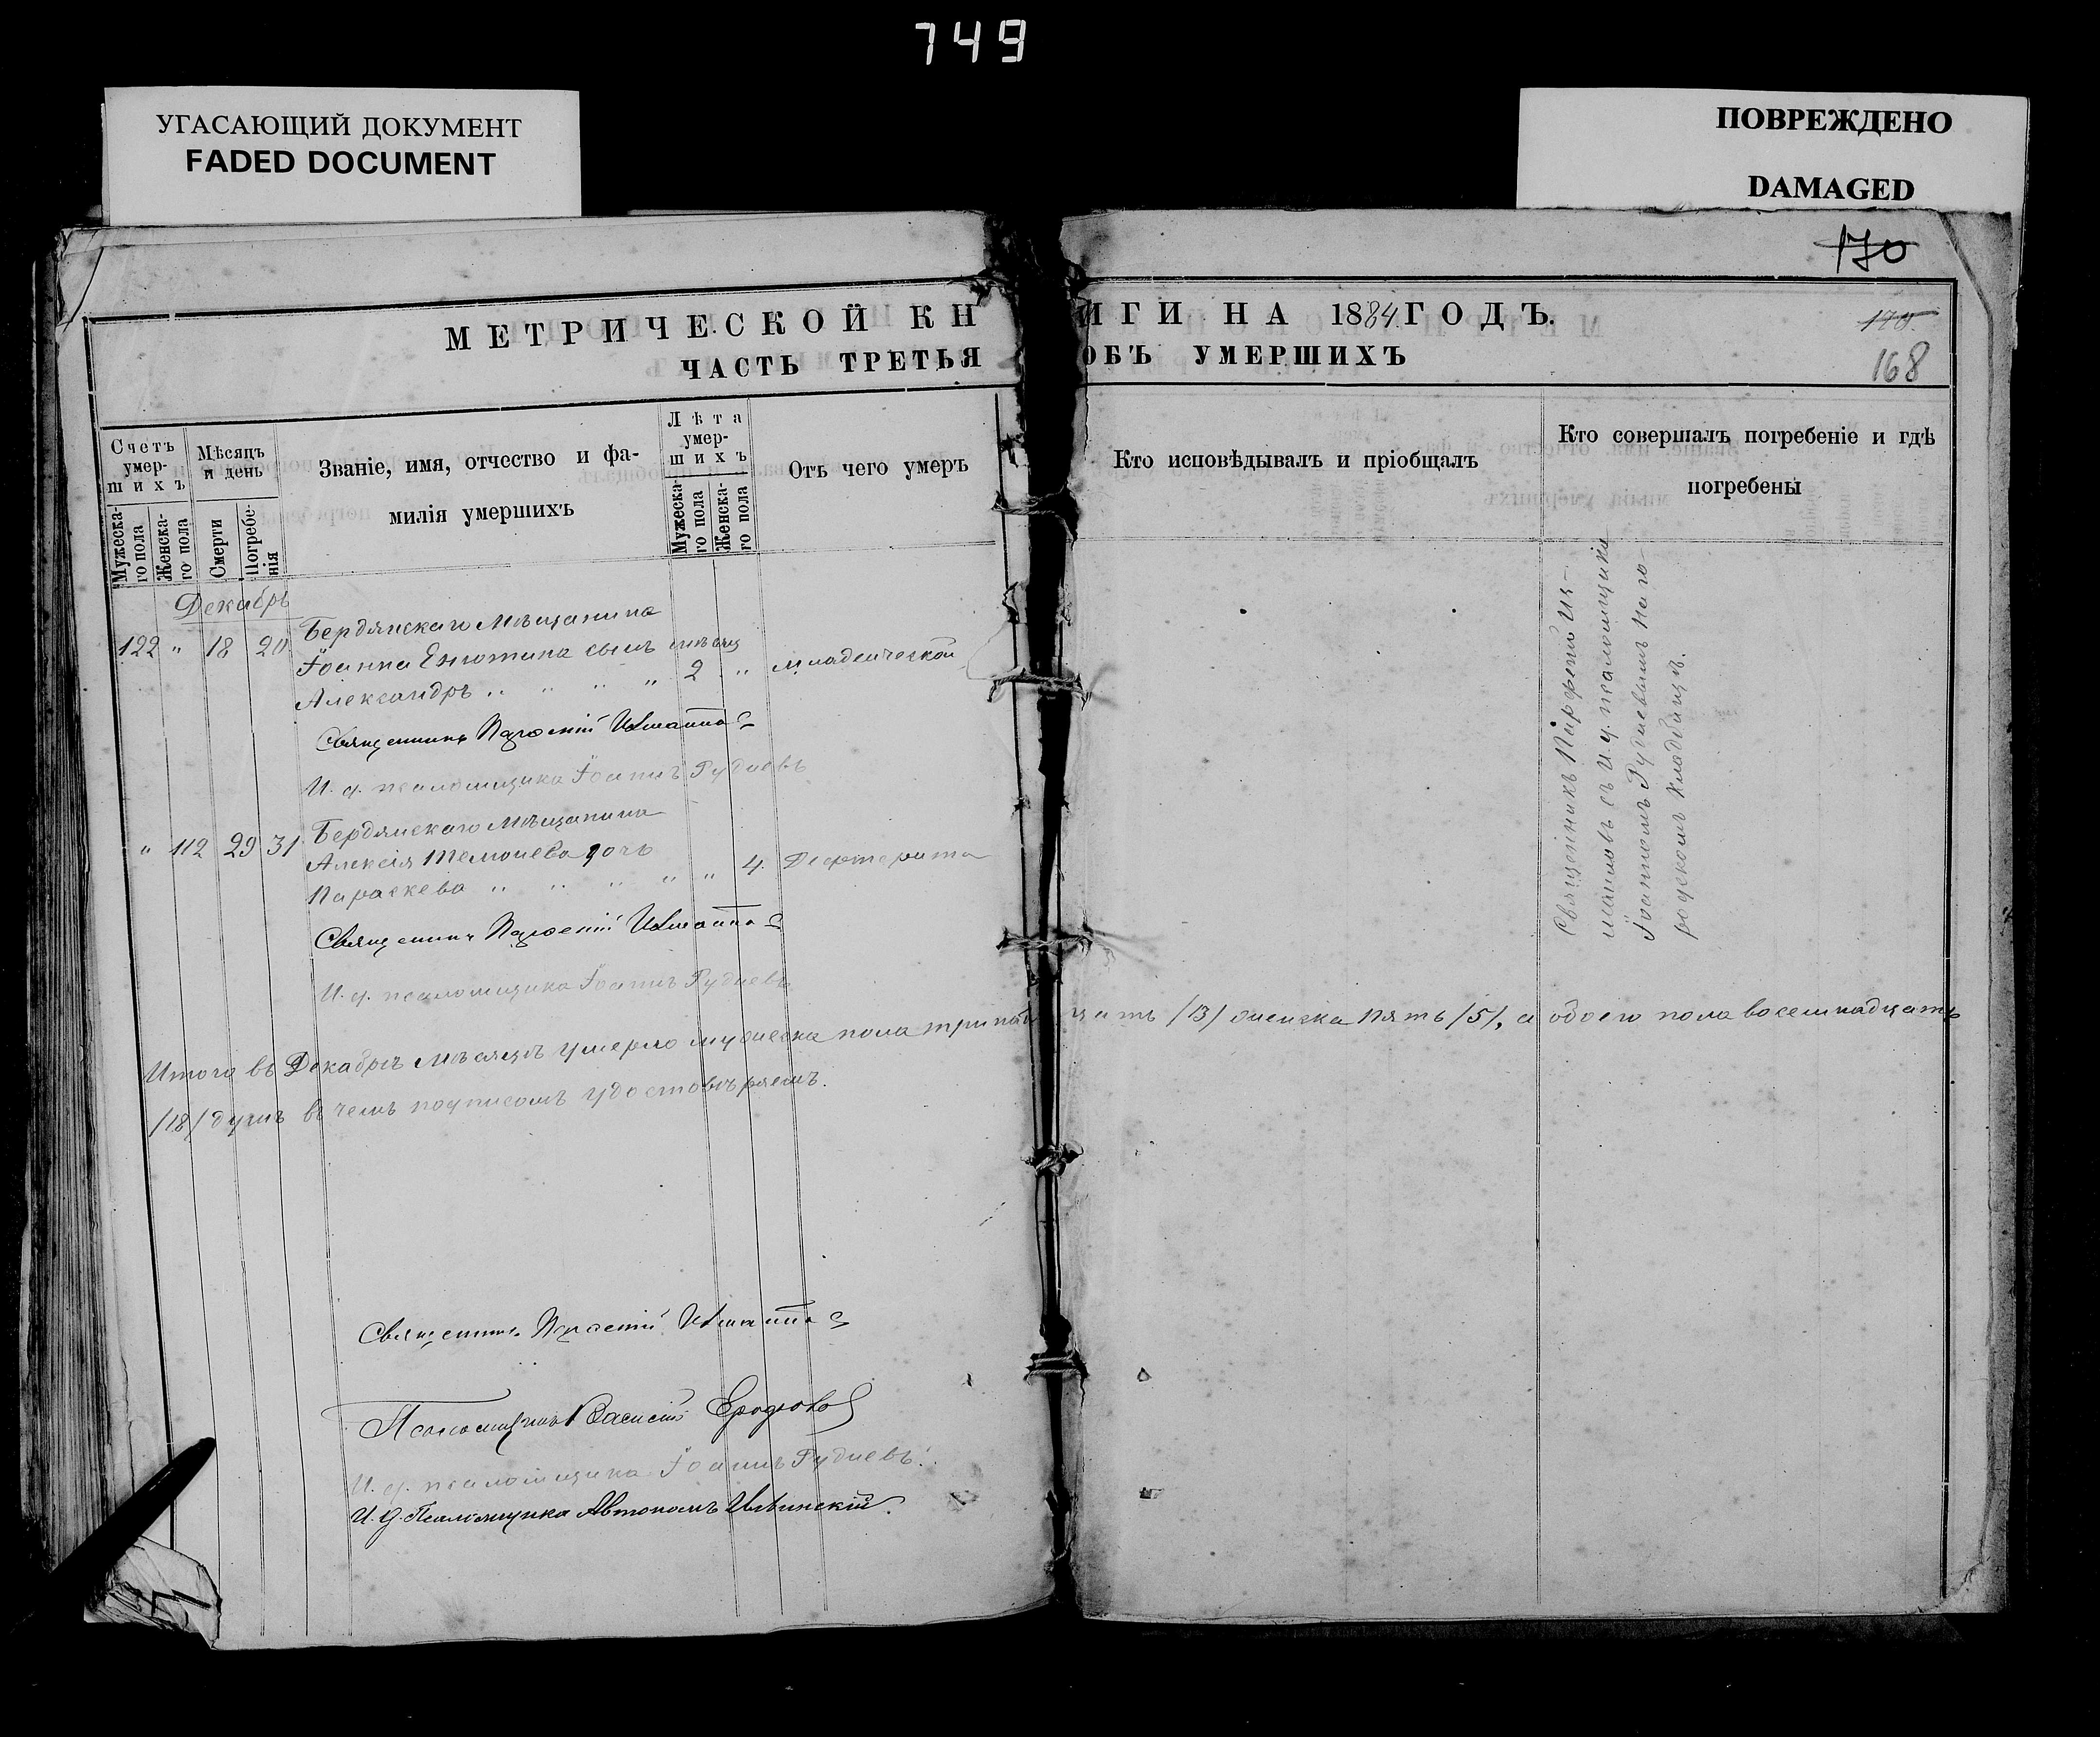 749
УГАСАЮЩИЙ ДОКУМЕНТ
FADED DOCUMENT
ПОВРЕЖДЕНО
DAMAGED
170
МЕТРИЧЕСКОЙ КНИГИ НА 1884 ГОДЪ.
170.
ЧАСТЬ ТРЕТЬЯ ОБЪ УМЕРШИХЪ
168
Счетъ умер-шихъ
Мужеска-го пола
Женска-го пола
Мѣсяцъ и день
Смерти
Погребе-нія
Званіе, имя, отчество и фа-
милія умершихъ
Лѣта умер-шихъ
Мужеска-го пола
Женска-го пола
Отъ чего умеръ
Кто исповѣдывалъ и пріобщалъ
Кто совершалъ погребеніе и гдѣ
погребены
Декабрь
122 " 18 20 Бердянскаго Мѣщанина
Іоанна сынъ мѣсяц
Александръ " " " " 2 " младенческой
Священникъ Парѳеній
И. д. псаломщика Іоаннъ Рудневъ
" 112 29 31 Бердянскаго Мѣщанина
Алексія дочь
Параскева " " " " " 4. Дифтерита
Священникъ Парѳеній
И. д. псаломщика Іоаннъ Рудневъ
Священникъ Парѳеній Из-
маиловъ съ И. д. псаломщика
Іоанномъ Рудневымъ на го-
родскомъ кладбищѣ.
Итого въ Декабрѣ мѣсяцѣ умерло мужеска пола тринадцать /13/ женска пять /5/, а обоего пола восемнадцать
/18/ душъ въ чемъ подписомъ удостовѣряемъ.
Священникъ Парѳеній
Псаломщикъ Василій
И. д. псаломщика Іоаннъ Рудневъ.
И. д. Псаломщика Автономъ Ильинскій.